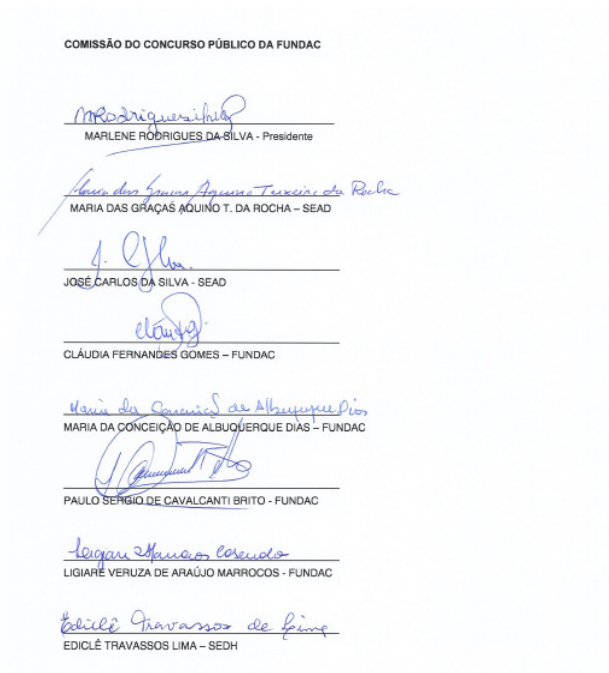 COMISSÃO DO CONCURSO PÚBLICO DA FUNDAC
MRodriguesilva
MARLENE RODRIGUES DA SILVA - Presidente
Maria das Graças Aquino Teixeira da Rocha
MARIA DAS GRAÇAS AQUINO T. DA ROCHA – SEAD
J. C
JOSÉ CARLOS DA SILVA - SEAD
CLÁUDIA FERNANDES GOMES – FUNDAC
Maria da Conceição de Albuquerque Dias
MARIA DA CONCEIÇÃO DE ALBUQUERQUE DIAS – FUNDAC
PAULO SERGIO DE CAVALCANTI BRITO - FUNDAC
LIGIARE VERUZA DE ARAÚJO MARROCOS - FUNDAC
Ediclê Travassos de Lima
EDICLÊ TRAVASSOS LIMA – SEDH